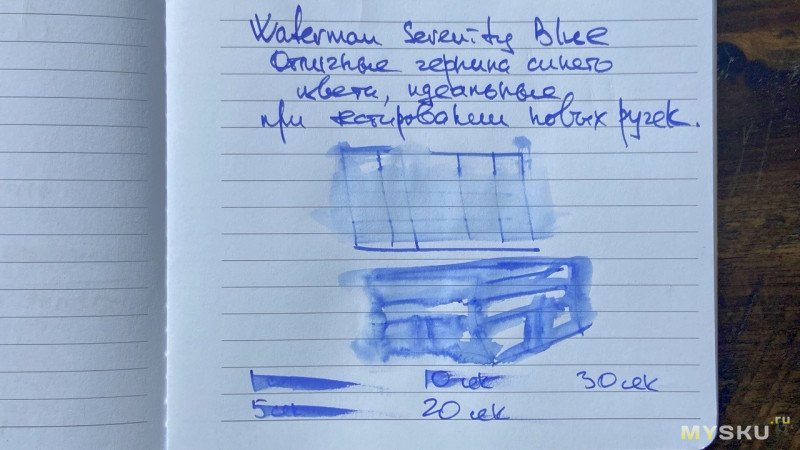 Waterman Serenity Blue
Отличные чернила синего
цвета, идеальные
при тестировании новых ручек.
10 сек
30 сек
5 сек
20 сек
MYSKU.ru